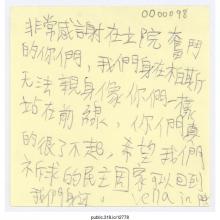 0000098
非常感謝在立院奮鬥
的你們，我們身在柏斯
無法親身像你們一樣
站在前線，你們真
的很了不起，希望我們
祈求的民主國家可以回到
我們身
public.318.io/19778